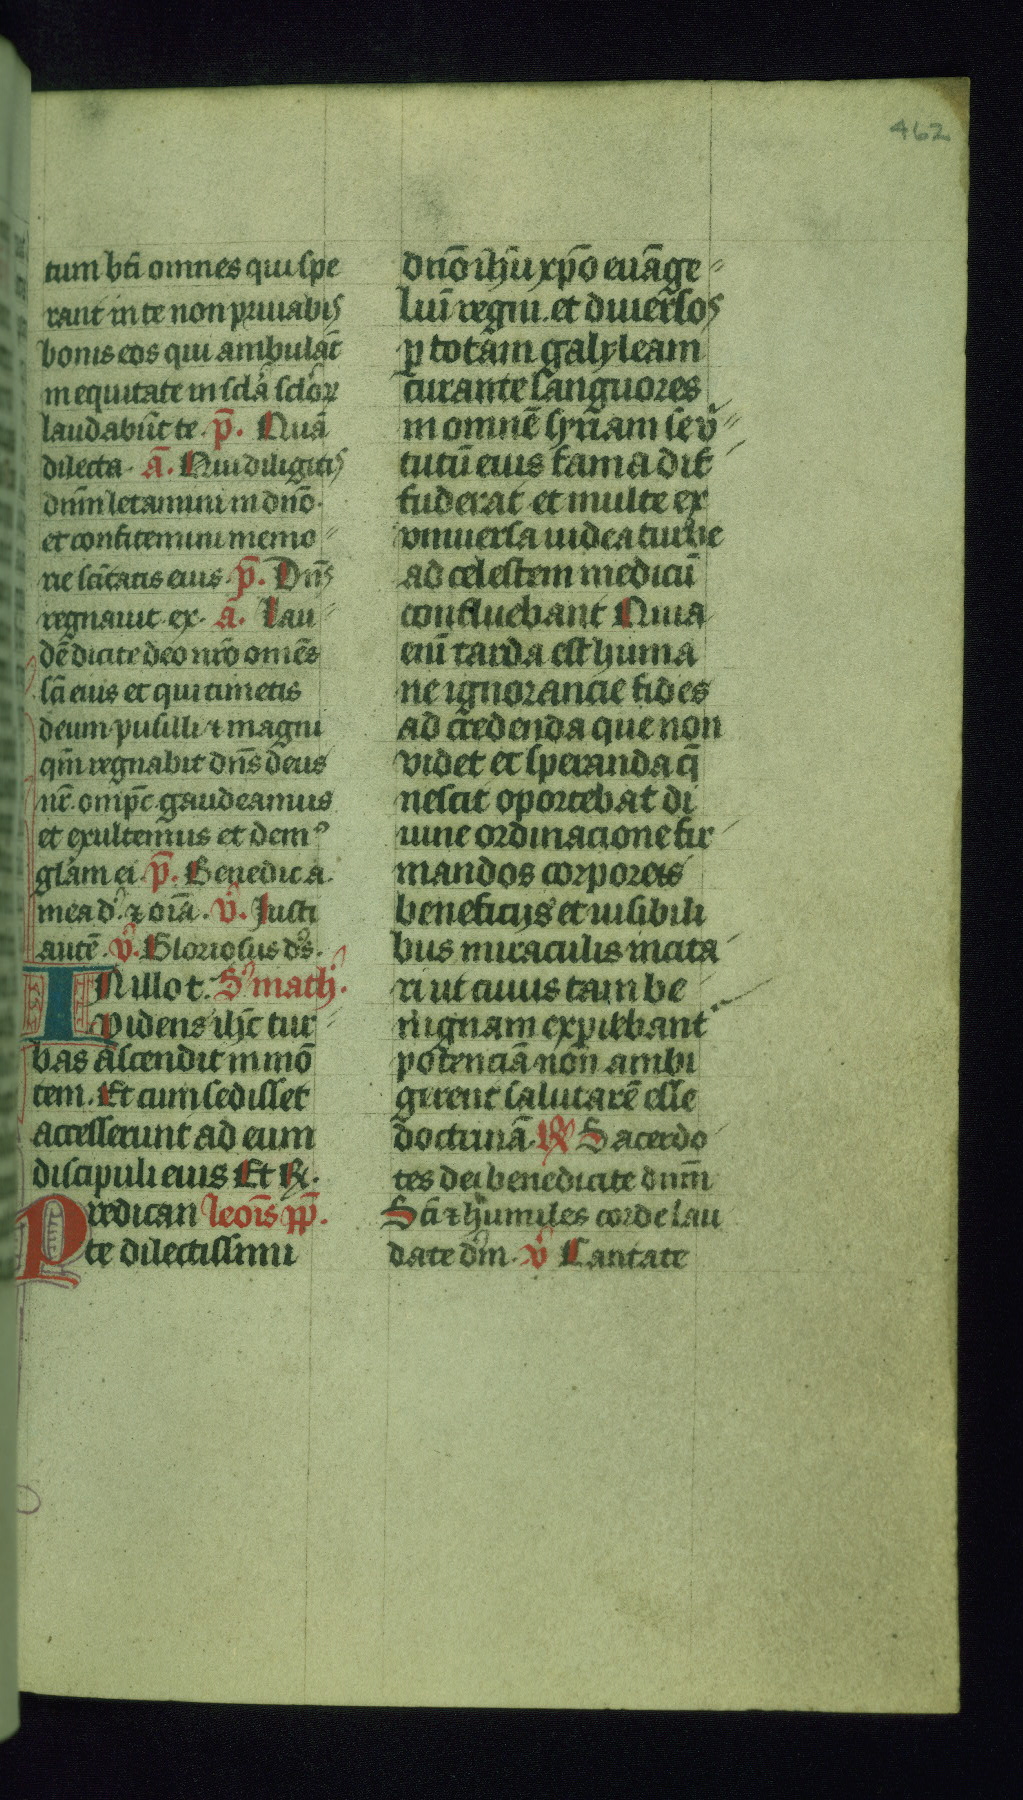 462
tum bti omnes qui spe
rant in te non priuabis
bonis eos qui ambulāt
in equitate in sclā sclōꝝ
laudabūt te. p̄. Quā
dilecta. ā. Qui diligitis
dnm̄ letamini in dnō.
et confitemini memo
rie scītatis eius. p̄. Dns̄
regnauit ex. ā. Lau
dē dicite deo nrō omēs
scī eius et qui timetis
deum pusilli ⁊ magni
qm̄ regnabit dns̄ deus
nr̄. omp̄c gaudeamus
et exultemus et dem⁹
glām ei. p̄. Benedic a.
mea d. ⁊ oīa. v̄. Justi
autē. v̄. Gloriosus ds̄.
IN illo t. S' math'.
Videns ihc̄ tur
bas ascendit in mō
tem. Et cum sedisset
accesserunt ad eum
discipuli eius Et R̄.
Predican leoīs pp̄.
te dilectissimi
dnō ihū xpō euāge
liū regni. et diuersos
ꝑ totam galyleam
curante languores
in omnē syriam se v̄
tutū eius fama dif
fuderat et multe ex
vniuersa iudea turbe
ad celestem medicū
confluebant Quia
enī tarda est huma
ne ignorancie fides
ad credenda que non
videt et speranda q̄
nescit oportebat di
uine ordinacione fir
mandos corporeis
beneficijs et uisibili
bus miraculis incita
ri ut cuius tam be
nignam expiebant
potenciā non ambi
gerent salutarē esse
doctrinā. R̄ Sacerdo
tes dei benedicite dnm̄
Scī ⁊ humiles corde lau
date dm̄. v̄ Cantate